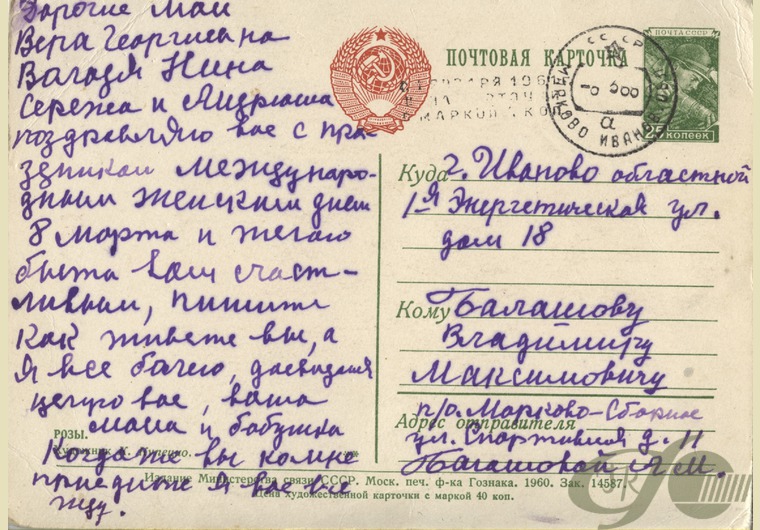 Дорогие мои
Вера Георгиевна
Володя Нина
Сережа и Андрюша
поздравляю вас с пра-
здником международ-
дным женским днем
8 марта и желаю
быть вам счаст-
ливым, пишите
как живете вы, а
я все болею, досвидания
целую вас, ваша
мама и бабушка
Когда же вы ко мне
приедите я вас все
жду.
РОЗЫ.
Художник
ПОЧТОВАЯ КАРТОЧКА
ПОЧТА СССР
25 КОПЕЕК
СССР
МАРКОВО ИВАНОВ
Куда г. Иваново областной
1-я Энергетическая ул.
дом 18
Кому Балашову
Владимиру
Максимовичу
Адрес отправителя
п/о. Марково-Сборное
ул. Спортивная д. 11
Балашовой А. М.
Издание Министерства связи СССР. Моск. печ. ф-ка Гознака. 1960. Зак. 14587.
Цена художественной карточки с маркой 40 коп.